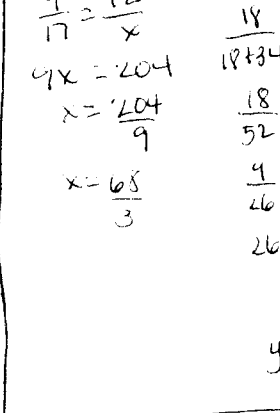 9/17 = 12/x
9x = 204
x = 204/9
x = 68/3
18/18+34
18/52
9/26
26
y